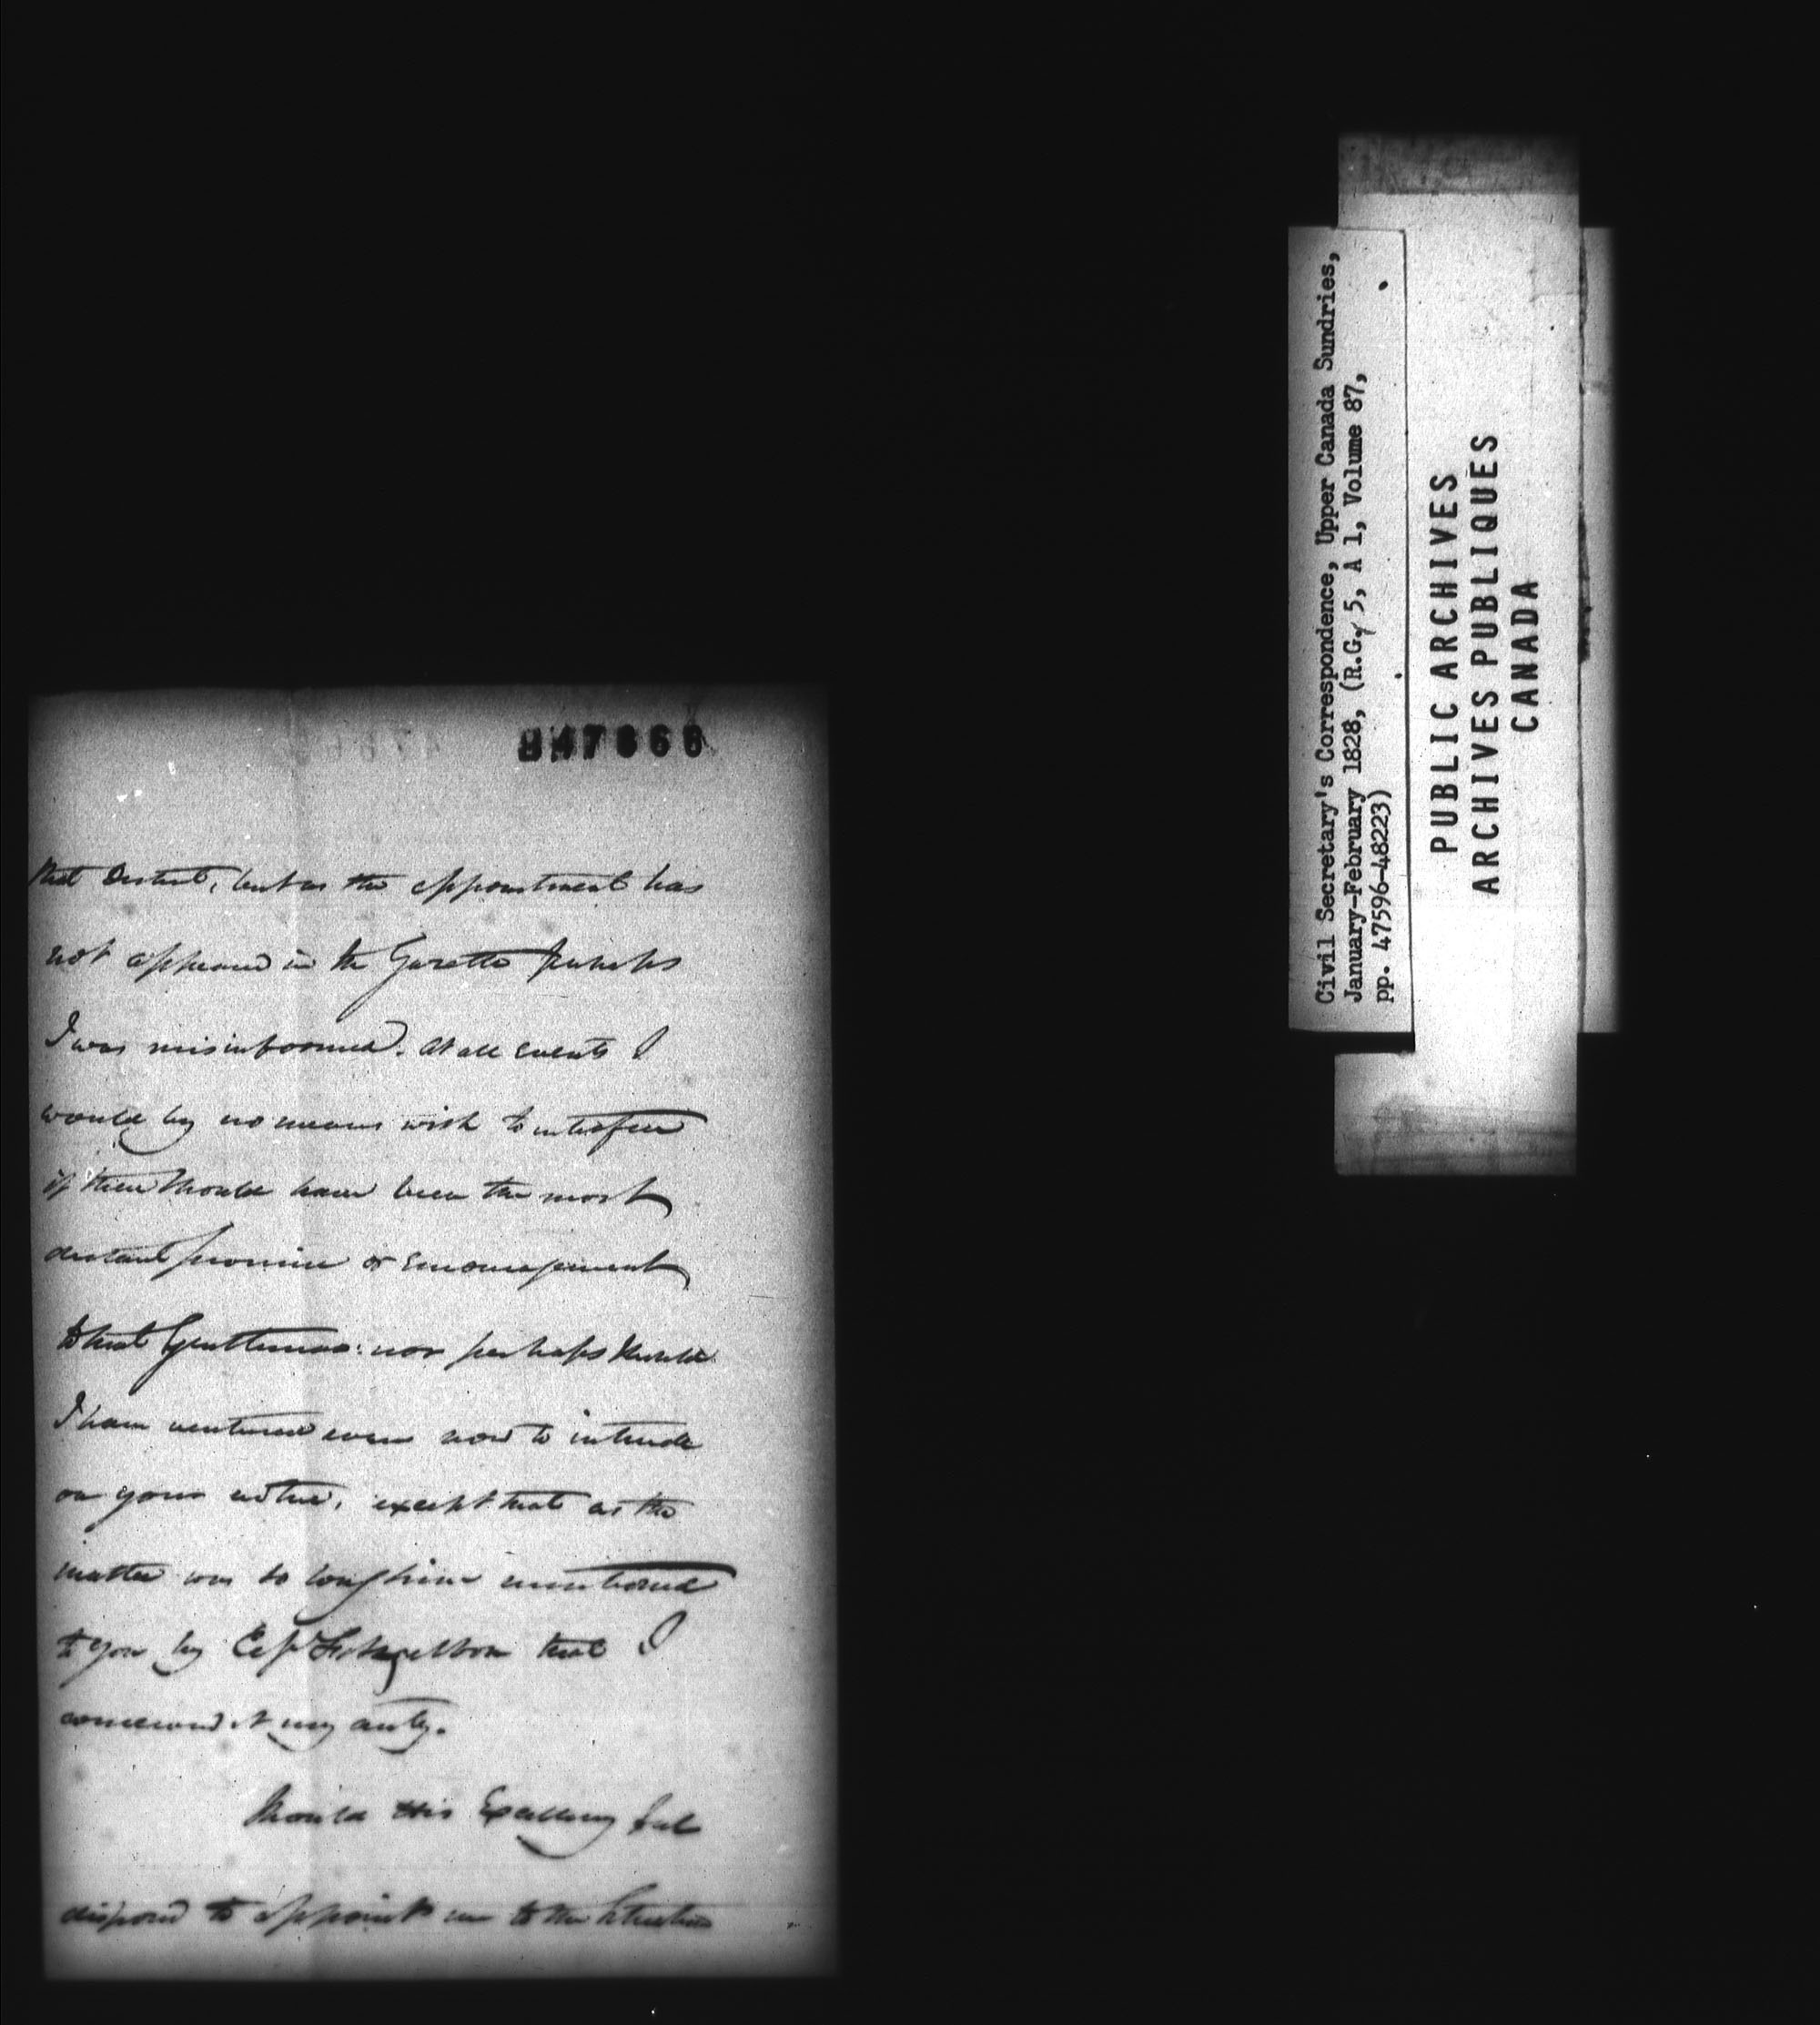 47666
that District, but as the appointment has
not appeared in the Gazette perhaps
I was misinformed. At all events I
would by no means wish to interfere
if there should have been the most
distant promise or encouragement
to that Gentleman: nor perhaps should
I have ventured even now to intrude
on your notice, except that as the
matter was so long since mentioned
to you by Capt Fitzgibbon that I
conceived it my duty.
Should His Excellency feel
disposed to appoint me to the situation
Civil Secretary's Correspondence, Upper Canada Sundries,
January-February 1828, (R.G. 5, A 1, Volume 87,
pp. 47596-48223)
PUBLIC ARCHIVES
ARCHIVES PUBLIQUES
CANADA